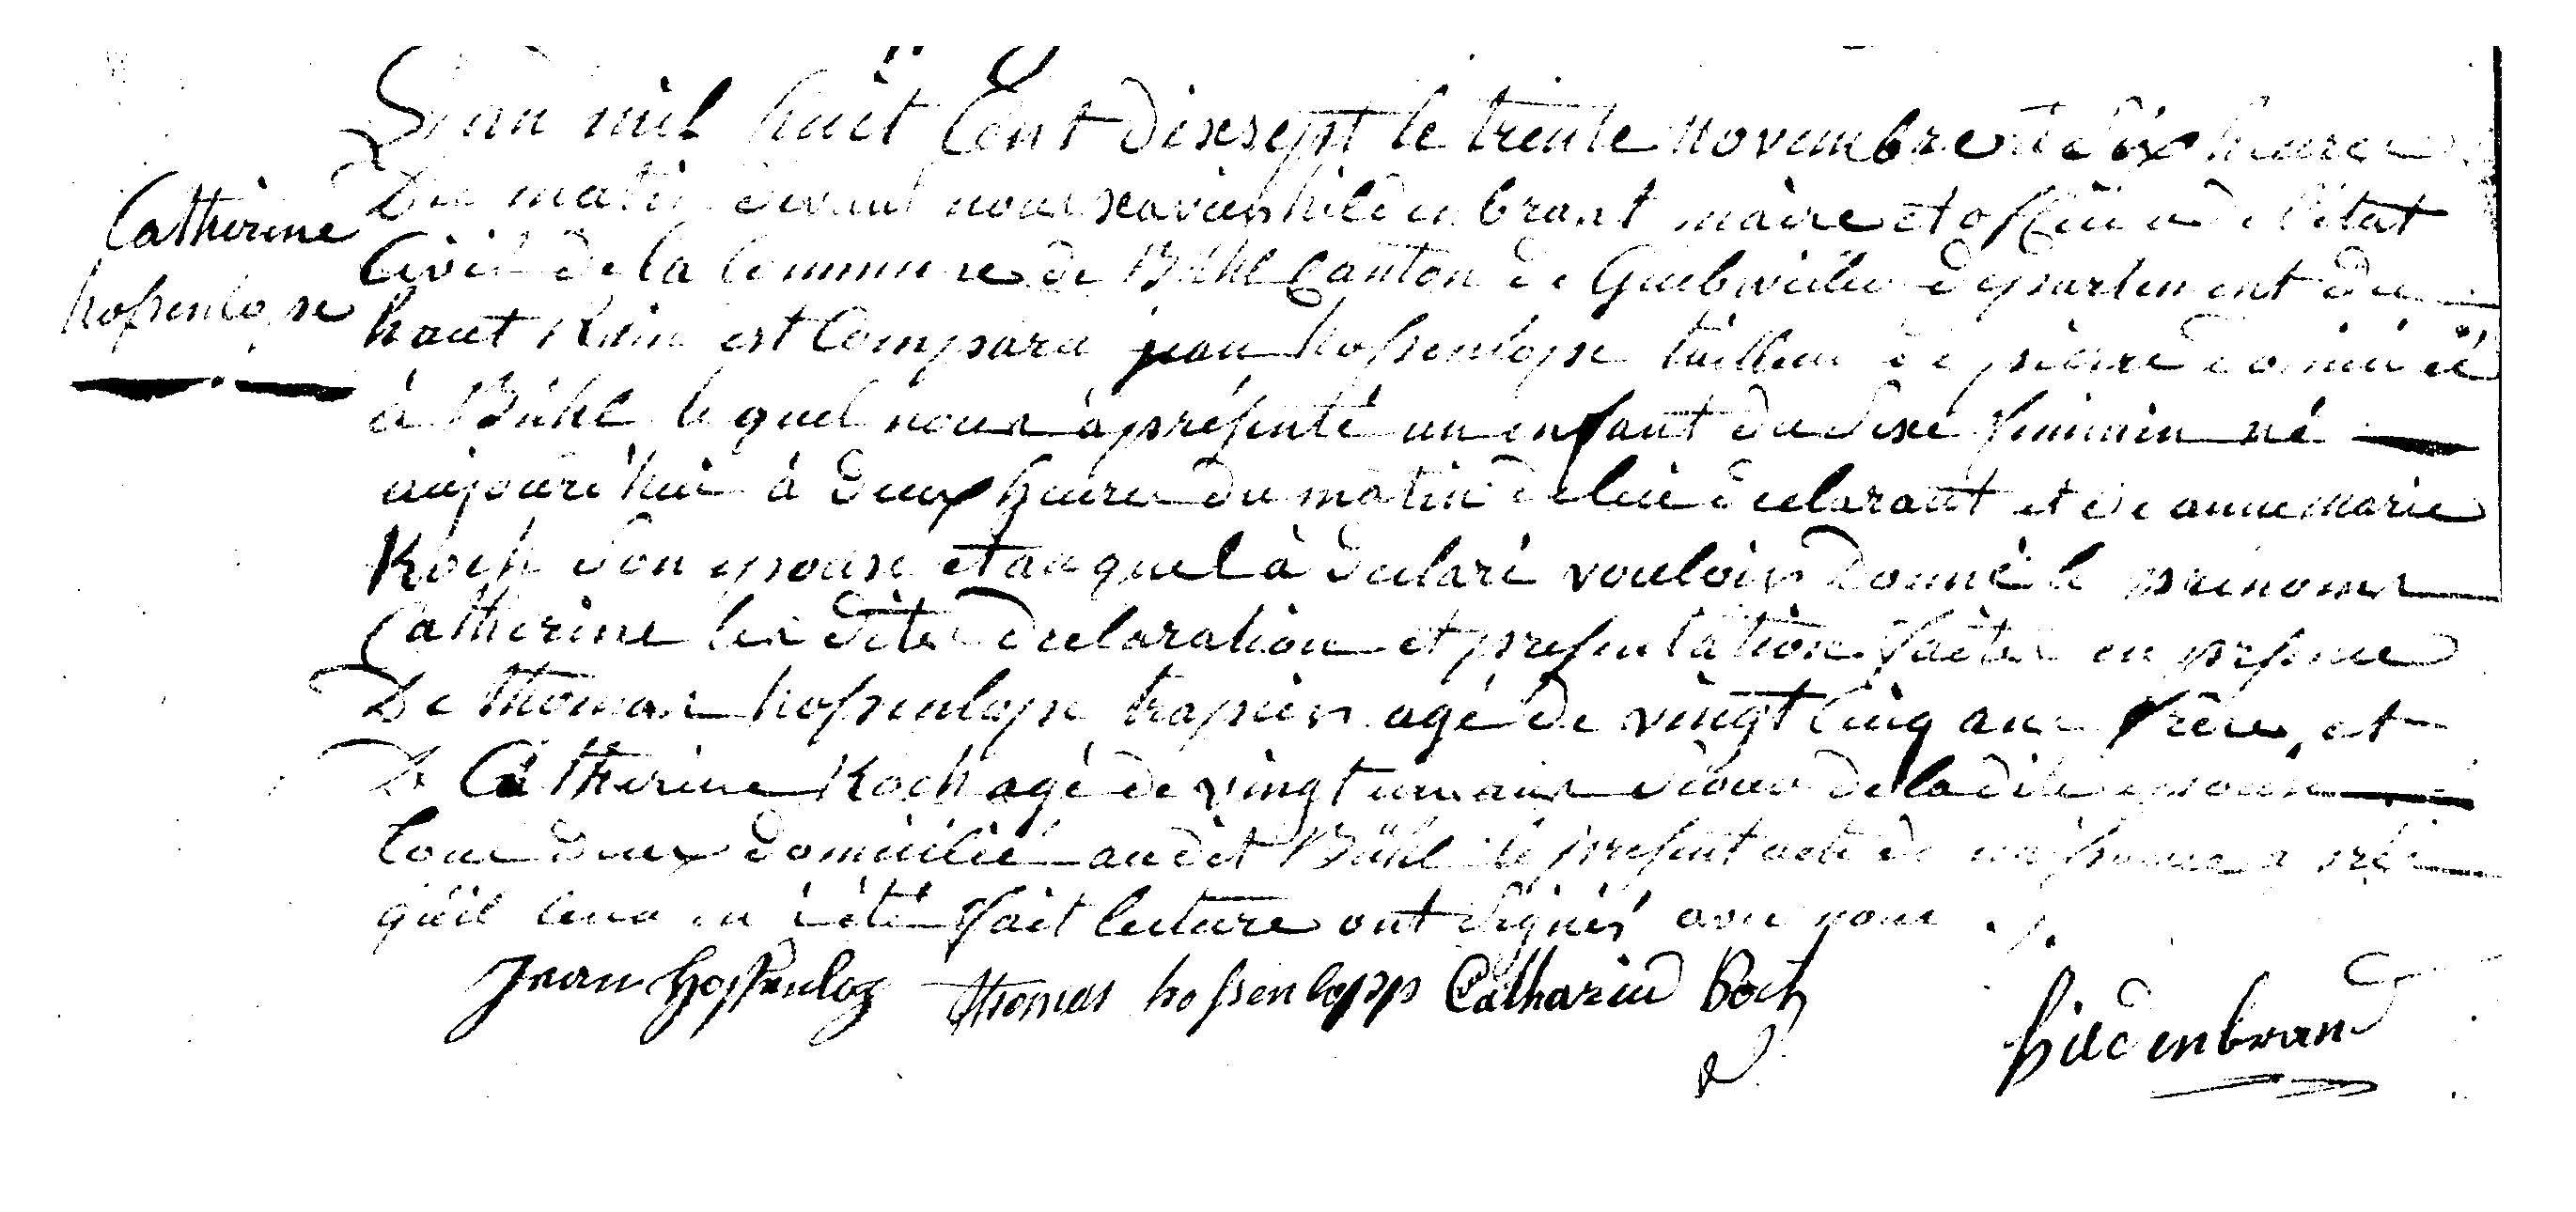 L'an mil huit Cent dix sept le trente novembre à dix heures
Catherine
hossenlopse
Du matin devant nous xavier hildenbrant maire et officier de l'état
Civil de la Commune de Bühl Canton de Guebwiller departement du
haut Rhin est Comparu jean hossenlopse tailleur de pierre domicilié
à Bühl lequel nous à présenté un enfant du sexe féminin né
aujourd'hui à deux heures du matin de lui déclarant et de anne marie
Koch son epouse et auquel à déclaré vouloir donné le prénoms
Catherine les dites declaration et presentation faites en presence
De thomas hossenlopse agé de vingt Cinq ans frère, et
De Catherine Koch agé de vingt un ans sœur de la dite epouse
tous deux domicilié au dit Bühl le present acte de naissance après
qu'il leur en à été fait lecture ont signés avec nous ./.
Jean Hossenlop thomas hossenlopp Catharina Koch
hildenbrand